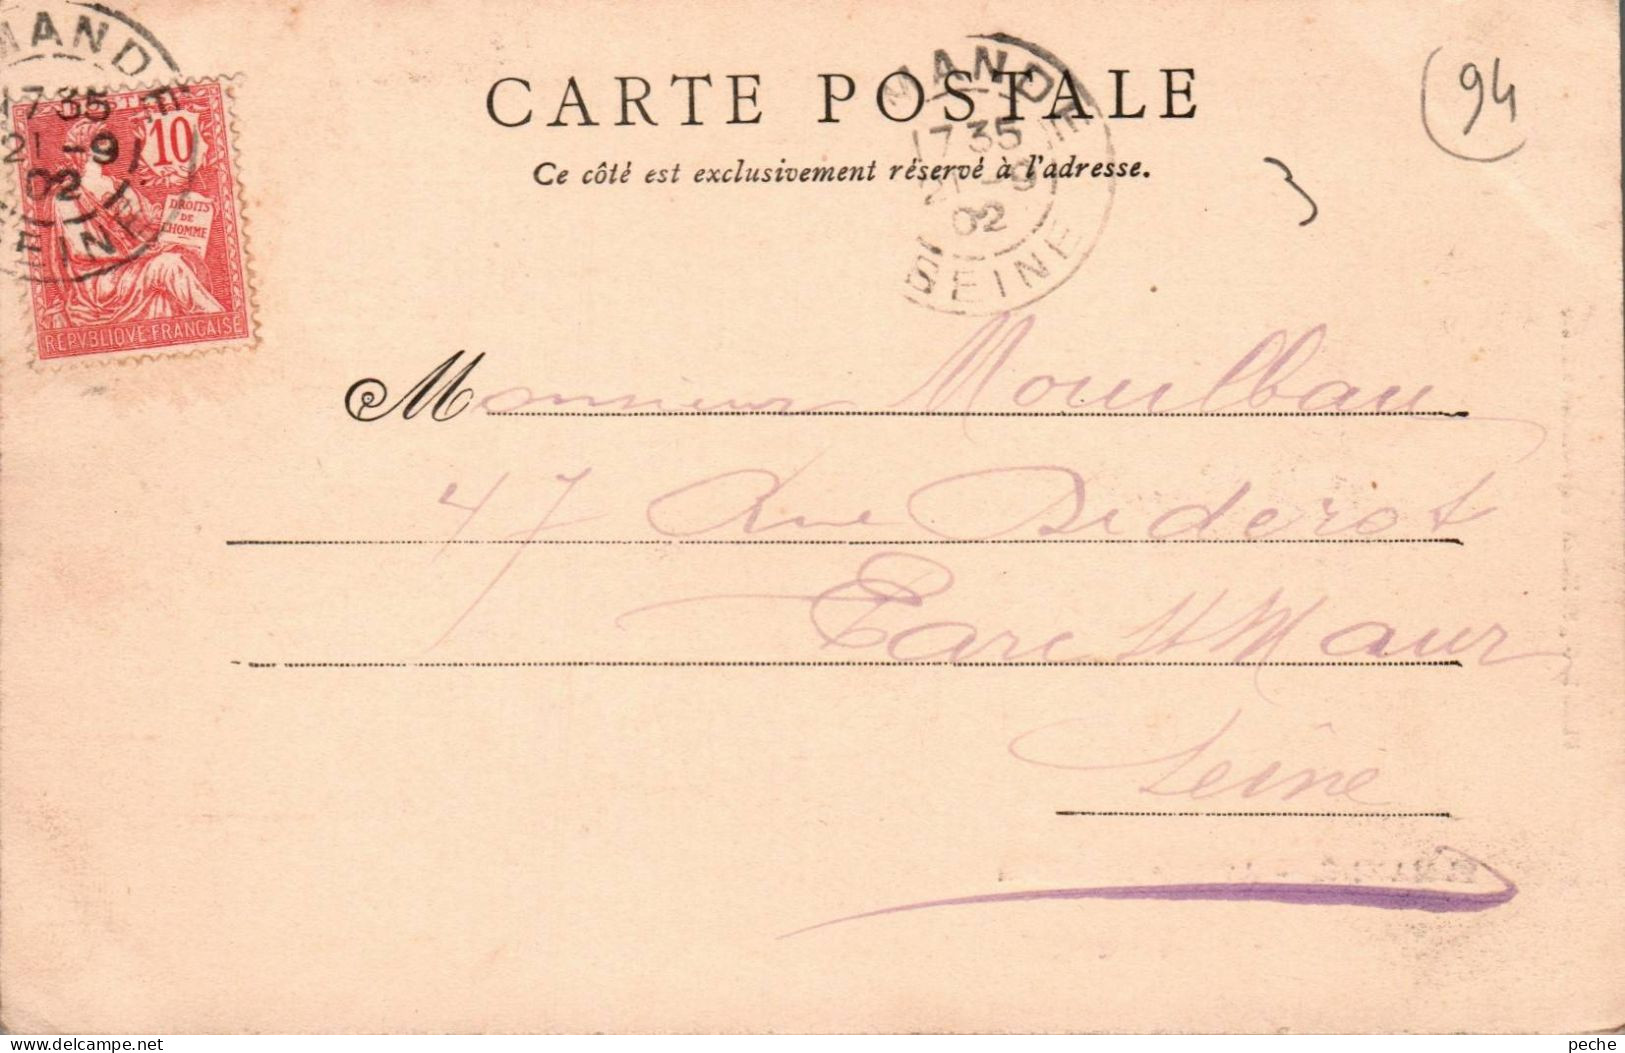 MANDE
17 35
21 -9
02
SEINE
POSTES
10
DROITS
DE
L'HOMME
REPVBLIQVE FRANÇAISE
CARTE POSTALE
Ce côté est exclusivement réservé à l'adresse.
MANDE
17 35
21 -9
02
SEINE
94
3
Monsieur Mouilbau
47 Rue Diderot
Parc St Maur
Seine
peche
Delcampe.net